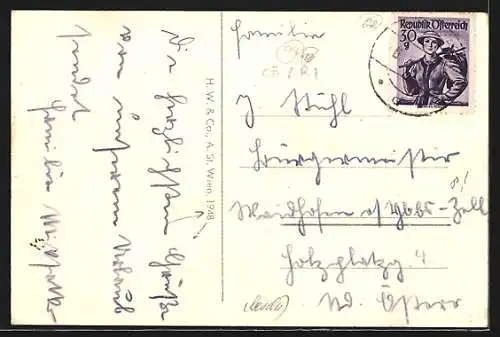 Die herzlichsten Grüße
von unserem Urlaub
sendet
Familie
H. W. & Co., A. St. Wien, 1948
Familie
J Stuhl
Bürgermeister
Waidhofen a/Ybbs-Zell
Holzplatzg. 4
Nd. Österr
Republik Österreich
30
g